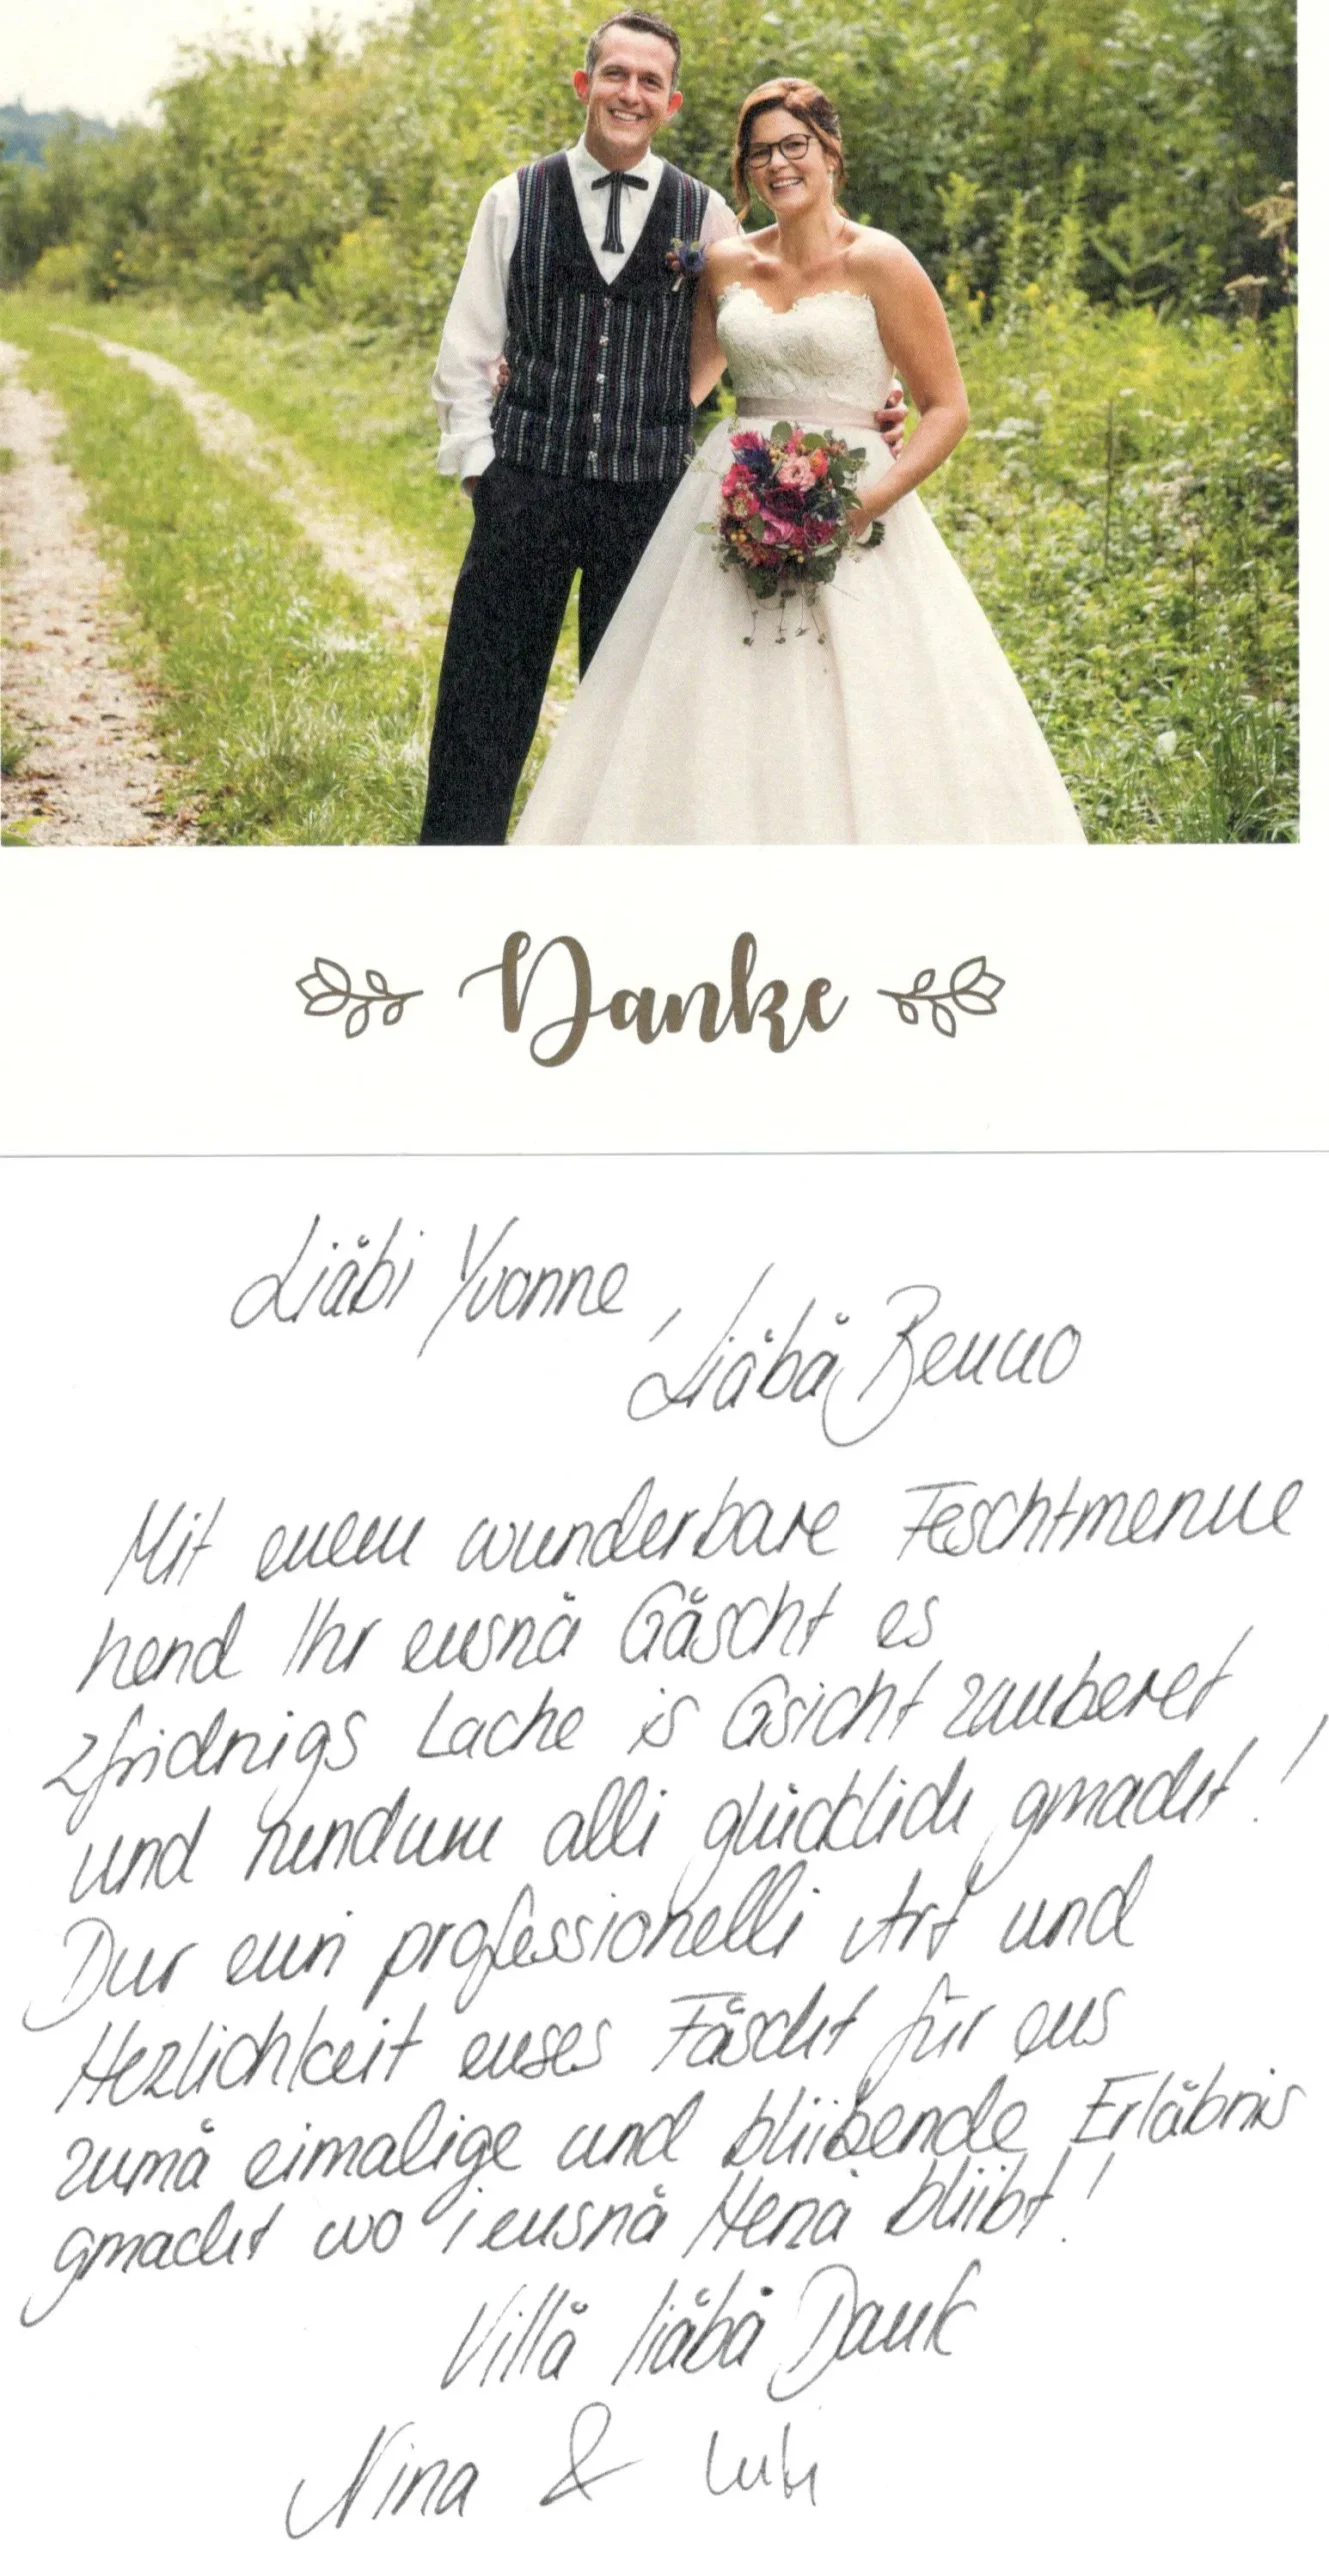 Danke
Liäbi Yvonne,
Liäbä Benno
Mit euem wunderbare Feschtmenue
hend Ihr eusnä Gäscht es
zfridnigs Lache is Gsicht zauberet
und rundum alli glücklich gmacht!
Dur euri professionelli Art und
Herzlichkeit euses Fäscht für eus
zumä eimalige und bliibende Erläbnis
gmacht wo i eusnä Herzä bliibt!
Villä liäbä Dank
Nina &